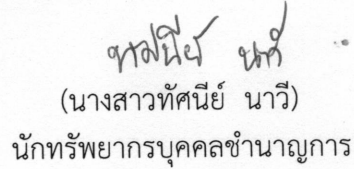 ทัศนีย์ นาวี
(นางสาวทัศนีย์ นาวี)
นักทรัพยากรบุคคลชำนาญการ